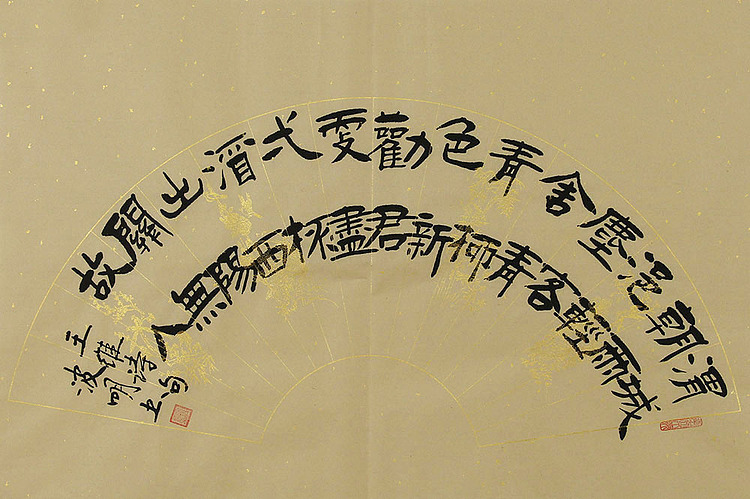 渭城
朝雨
浥輕
塵客
舍青
青柳
色新
勸君
更盡
弌杯
酒西
出陽
關無
故人
王維詩句
波明书